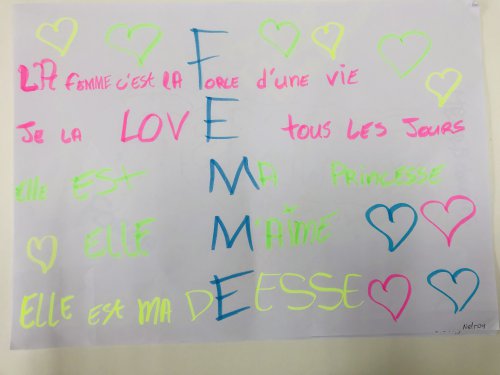 LA FEMME C'EST LA FORCE d'UNE VIE
JE LA LOVE TOUS LES JOURS
elle EST MA PRINCESSE
ELLE M'AIME
ELLE EST MA DEESSE